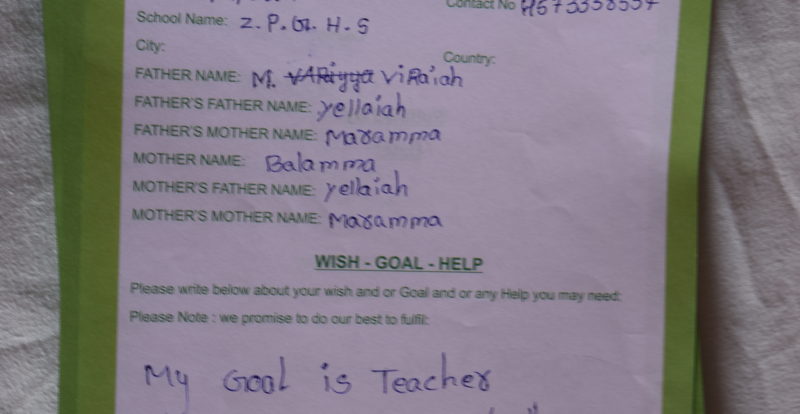 Contact No
School Name: Z. P. G. H. S
City: Country:
FATHER NAME: M. ViRaiah
FATHER'S FATHER NAME: yellaiah
FATHER'S MOTHER NAME: Maramma
MOTHER NAME: Balamma
MOTHER'S FATHER NAME: yellaiah
MOTHER'S MOTHER NAME: Maramma
WISH - GOAL - HELP
Please write below about your wish and or Goal and or any Help you may need:
Please Note : we promise to do our best to fulfil:
My Goal is Teacher